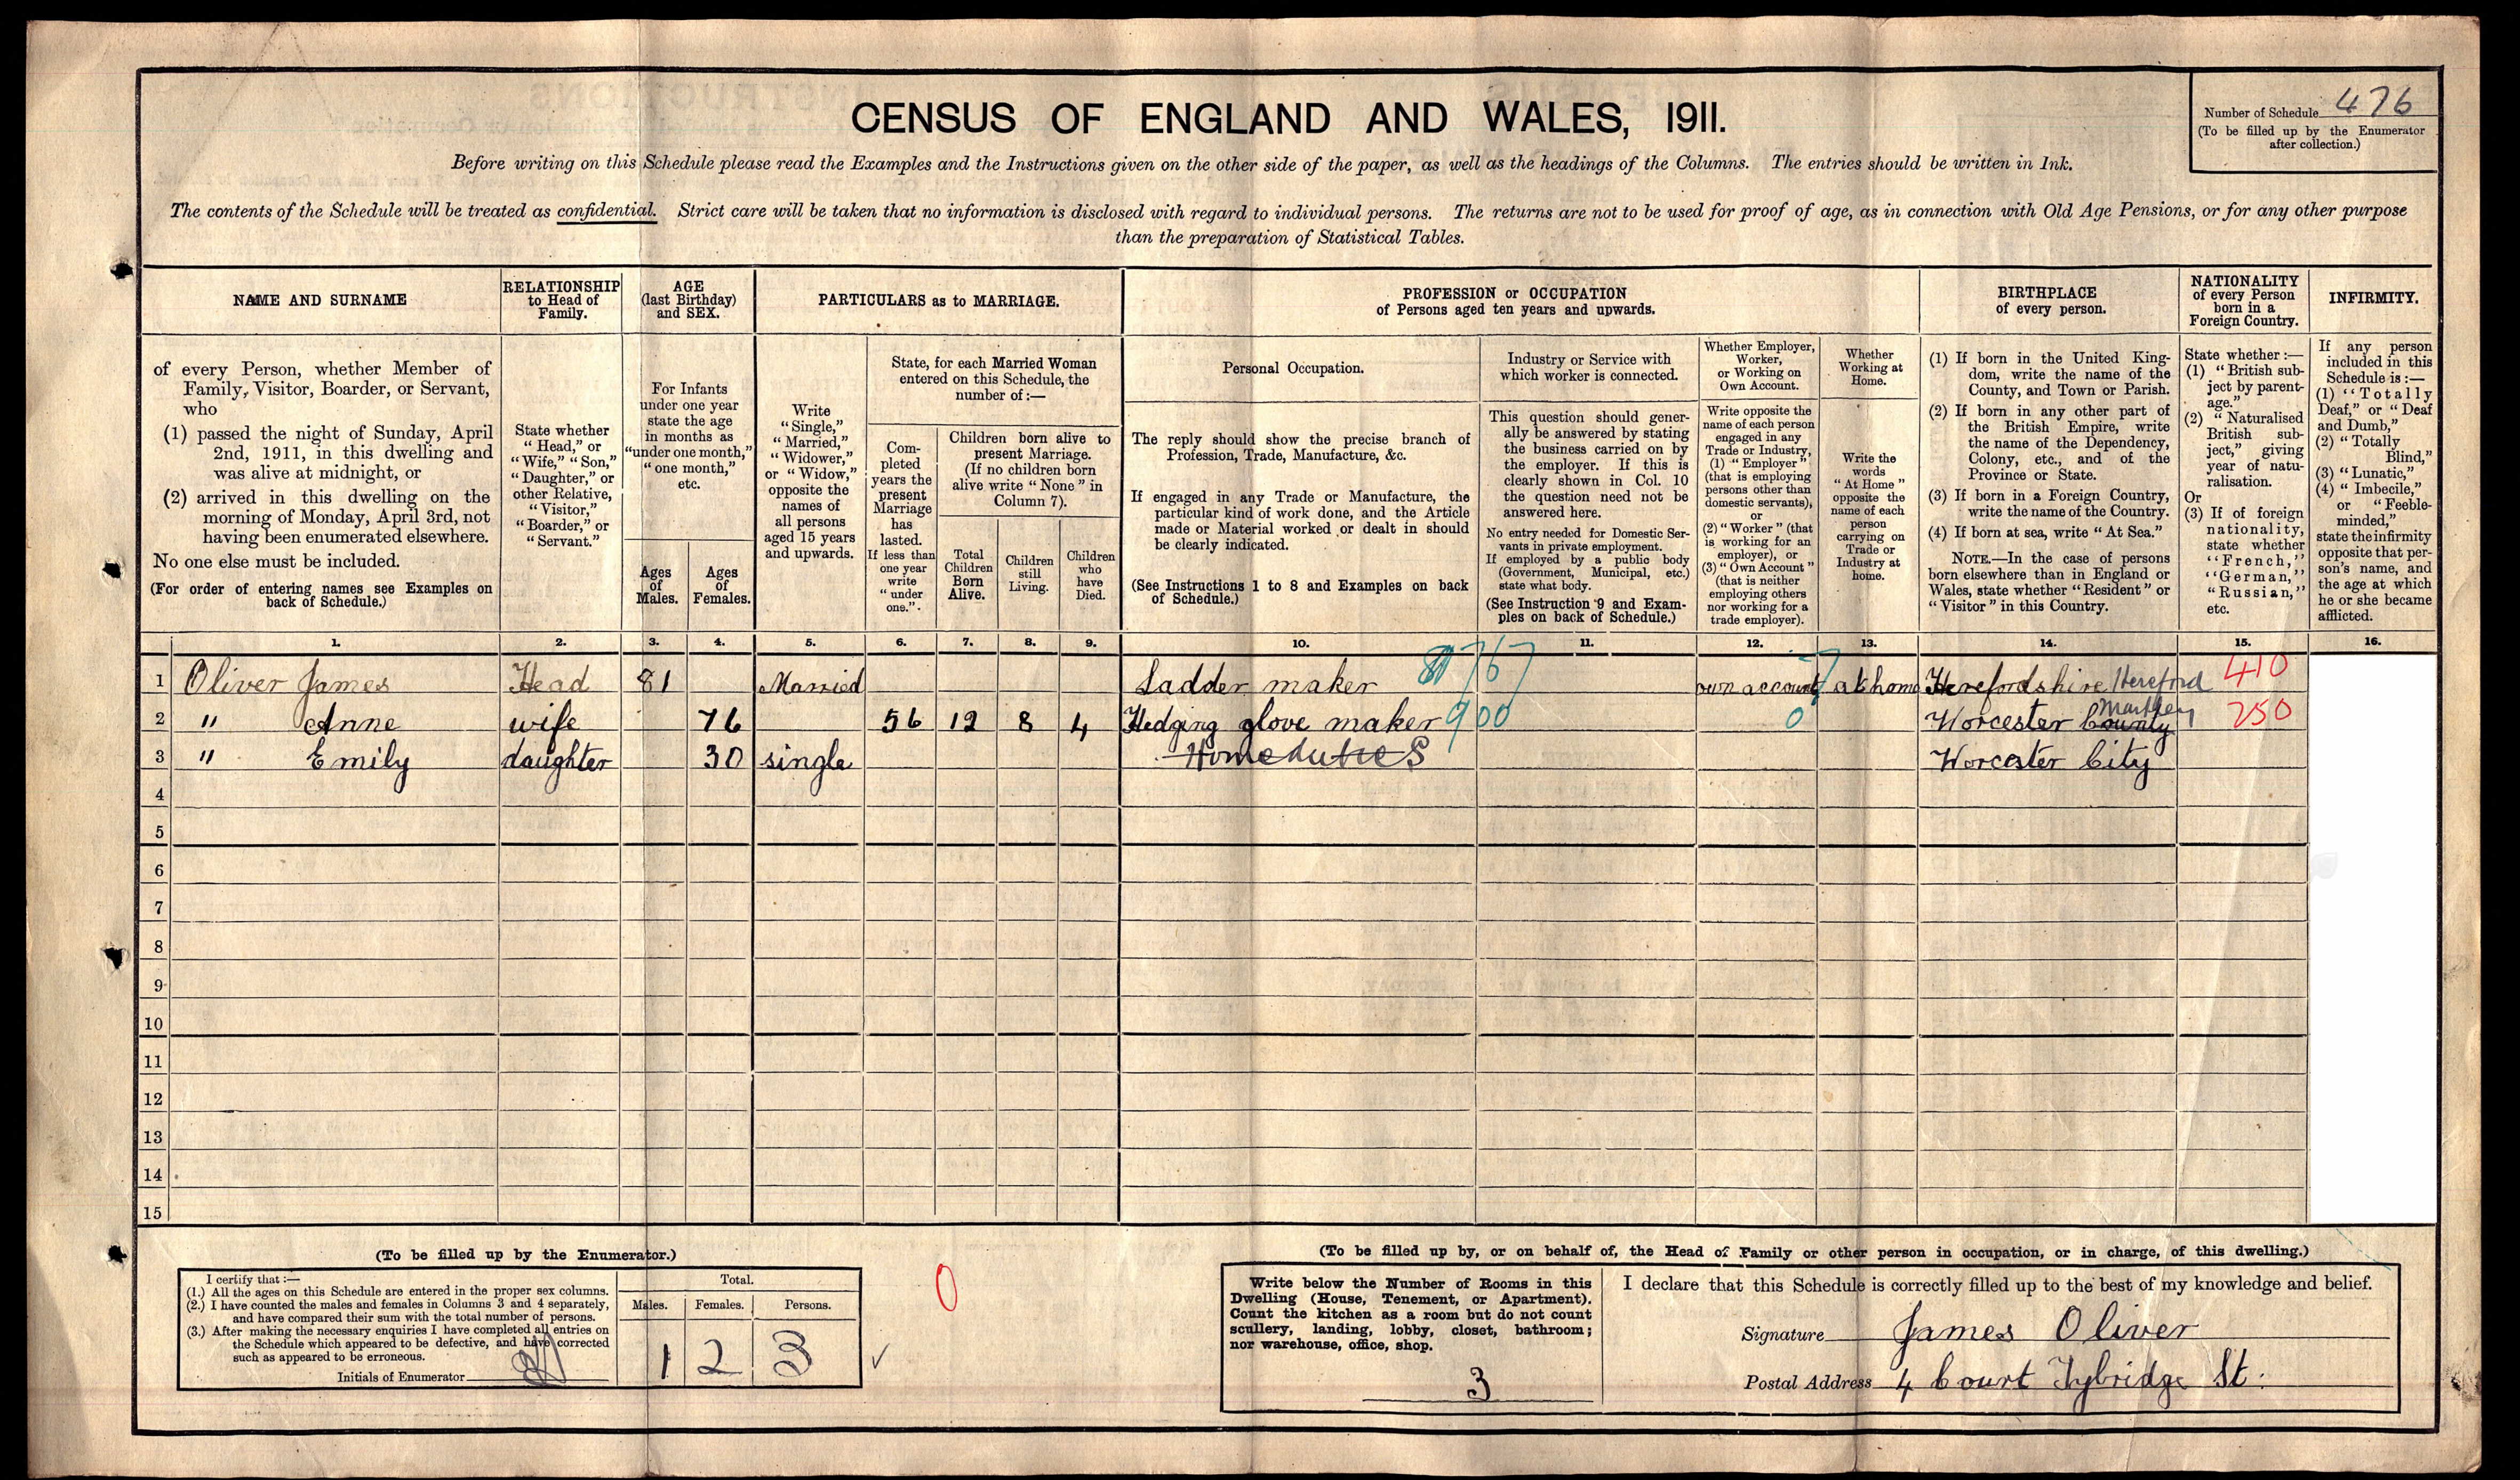 CENSUS OF ENGLAND AND WALES, 1911.
Number of Schedule 476
(To be filled up by the Enumerator
after collection.)
Before writing on this Schedule please read the Examples and the Instructions given on the other side of the paper, as well as the headings of the Columns. The entries should be written in Ink.
The contents of the Schedule will be treated as confidential. Strict care will be taken that no information is disclosed with regard to individual persons. The returns are not to be used for proof of age, as in connection with Old Age Pensions, or for any other purpose
than the preparation of Statistical Tables.
NAME AND SURNAME
of every Person, whether Member of
Family, Visitor, Boarder, or Servant,
who
(1) passed the night of Sunday, April
2nd, 1911, in this dwelling and
was alive at midnight, or
(2) arrived in this dwelling on the
morning of Monday, April 3rd, not
having been enumerated elsewhere.
No one else must be included.
(For order of entering names see Examples on
back of Schedule.)
RELATIONSHIP
to Head of
Family.
State whether
"Head," or
"Wife," "Son,"
"Daughter," or
other Relative,
"Visitor,"
"Boarder," or
"Servant."
AGE
(last Birthday)
and SEX.
For Infants
under one year
state the age
in months as
"under one month,"
"one month,"
etc.
Ages
of
Males.
Ages
of
Females.
PARTICULARS as to MARRIAGE.
Write
"Single,"
"Married,"
"Widower,"
or "Widow,"
opposite the
names of
all persons
aged 15 years
and upwards.
State, for each Married Woman
entered on this Schedule, the
number of :—
Com-
pleted
years the
present
Marriage
has
lasted.
If less than
one year
write
"under
one."
Children born alive to
present Marriage.
(If no children born
alive write "None" in
Column 7).
Total
Children
Born
Alive.
Children
still
Living.
Children
who
have
Died.
PROFESSION or OCCUPATION
of Persons aged ten years and upwards.
Personal Occupation.
The reply should show the precise branch of
Profession, Trade, Manufacture, &c.
If engaged in any Trade or Manufacture, the
particular kind of work done, and the Article
made or Material worked or dealt in should
be clearly indicated.
(See Instructions 1 to 8 and Examples on back
of Schedule.)
Industry or Service with
which worker is connected.
This question should gener-
ally be answered by stating
the business carried on by
the employer. If this is
clearly shown in Col. 10
the question need not be
answered here.
No entry needed for Domestic Ser-
vants in private employment.
If employed by a public body
(Government, Municipal, etc.)
state what body.
(See Instruction 9 and Exam-
ples on back of Schedule.)
Whether Employer,
Worker,
or Working on
Own Account.
Write opposite the
name of each person
engaged in any
Trade or Industry,
(1) "Employer"
(that is employing
persons other than
domestic servants),
or
(2) "Worker" (that
is working for an
employer), or
(3) "Own Account"
(that is neither
employing others
nor working for a
trade employer).
Whether
Working at
Home.
Write the
words
"At Home"
opposite the
name of each
person
carrying on
Trade or
Industry at
home.
BIRTHPLACE
of every person.
(1) If born in the United King-
dom, write the name of the
County, and Town or Parish.
(2) If born in any other part of
the British Empire, write
the name of the Dependency,
Colony, etc., and of the
Province or State.
(3) If born in a Foreign Country,
write the name of the Country.
(4) If born at sea, write "At Sea."
NOTE.—In the case of persons
born elsewhere than in England or
Wales, state whether "Resident" or
"Visitor" in this Country.
NATIONALITY
of every Person
born in a
Foreign Country.
State whether :—
(1) "British sub-
ject by parent-
age."
(2) "Naturalised
British sub-
ject," giving
year of natu-
ralisation.
Or
(3) If of foreign
nationality,
state whether
"French,"
"German,"
"Russian,"
etc.
INFIRMITY.
If any person
included in this
Schedule is :—
(1) "Totally
Deaf," or "Deaf
and Dumb,"
(2) "Totally
Blind,"
(3) "Lunatic,"
(4) "Imbecile,"
or "Feeble-
minded,"
state the infirmity
opposite that per-
son's name, and
the age at which
he or she became
afflicted.
1. 2. 3. 4. 5. 6. 7. 8. 9. 10. 11. 12. 13. 14. 15. 16.
1 Oliver James Head 81 Married Ladder maker 767 own account at home Herefordshire Hereford 410
2 " Anne wife 76 56 12 8 4 Hedging glove maker 900 0 Worcester County Martley 250
3 " Emily daughter 30 single Home duties Worcester City
4
5
6
7
8
9
10
11
12
13
14
15
(To be filled up by the Enumerator.)
I certify that :—
(1.) All the ages on this Schedule are entered in the proper sex columns.
(2.) I have counted the males and females in Columns 3 and 4 separately,
and have compared their sum with the total number of persons.
(3.) After making the necessary enquiries I have completed all entries on
the Schedule which appeared to be defective, and have corrected
such as appeared to be erroneous.
Initials of Enumerator
Total.
Males. Females. Persons.
1 2 3
0
(To be filled up by, or on behalf of, the Head of Family or other person in occupation, or in charge, of this dwelling.)
Write below the Number of Rooms in this
Dwelling (House, Tenement, or Apartment).
Count the kitchen as a room but do not count
scullery, landing, lobby, closet, bathroom;
nor warehouse, office, shop.
3
I declare that this Schedule is correctly filled up to the best of my knowledge and belief.
Signature James Oliver
Postal Address 4 Court Tybridge St.